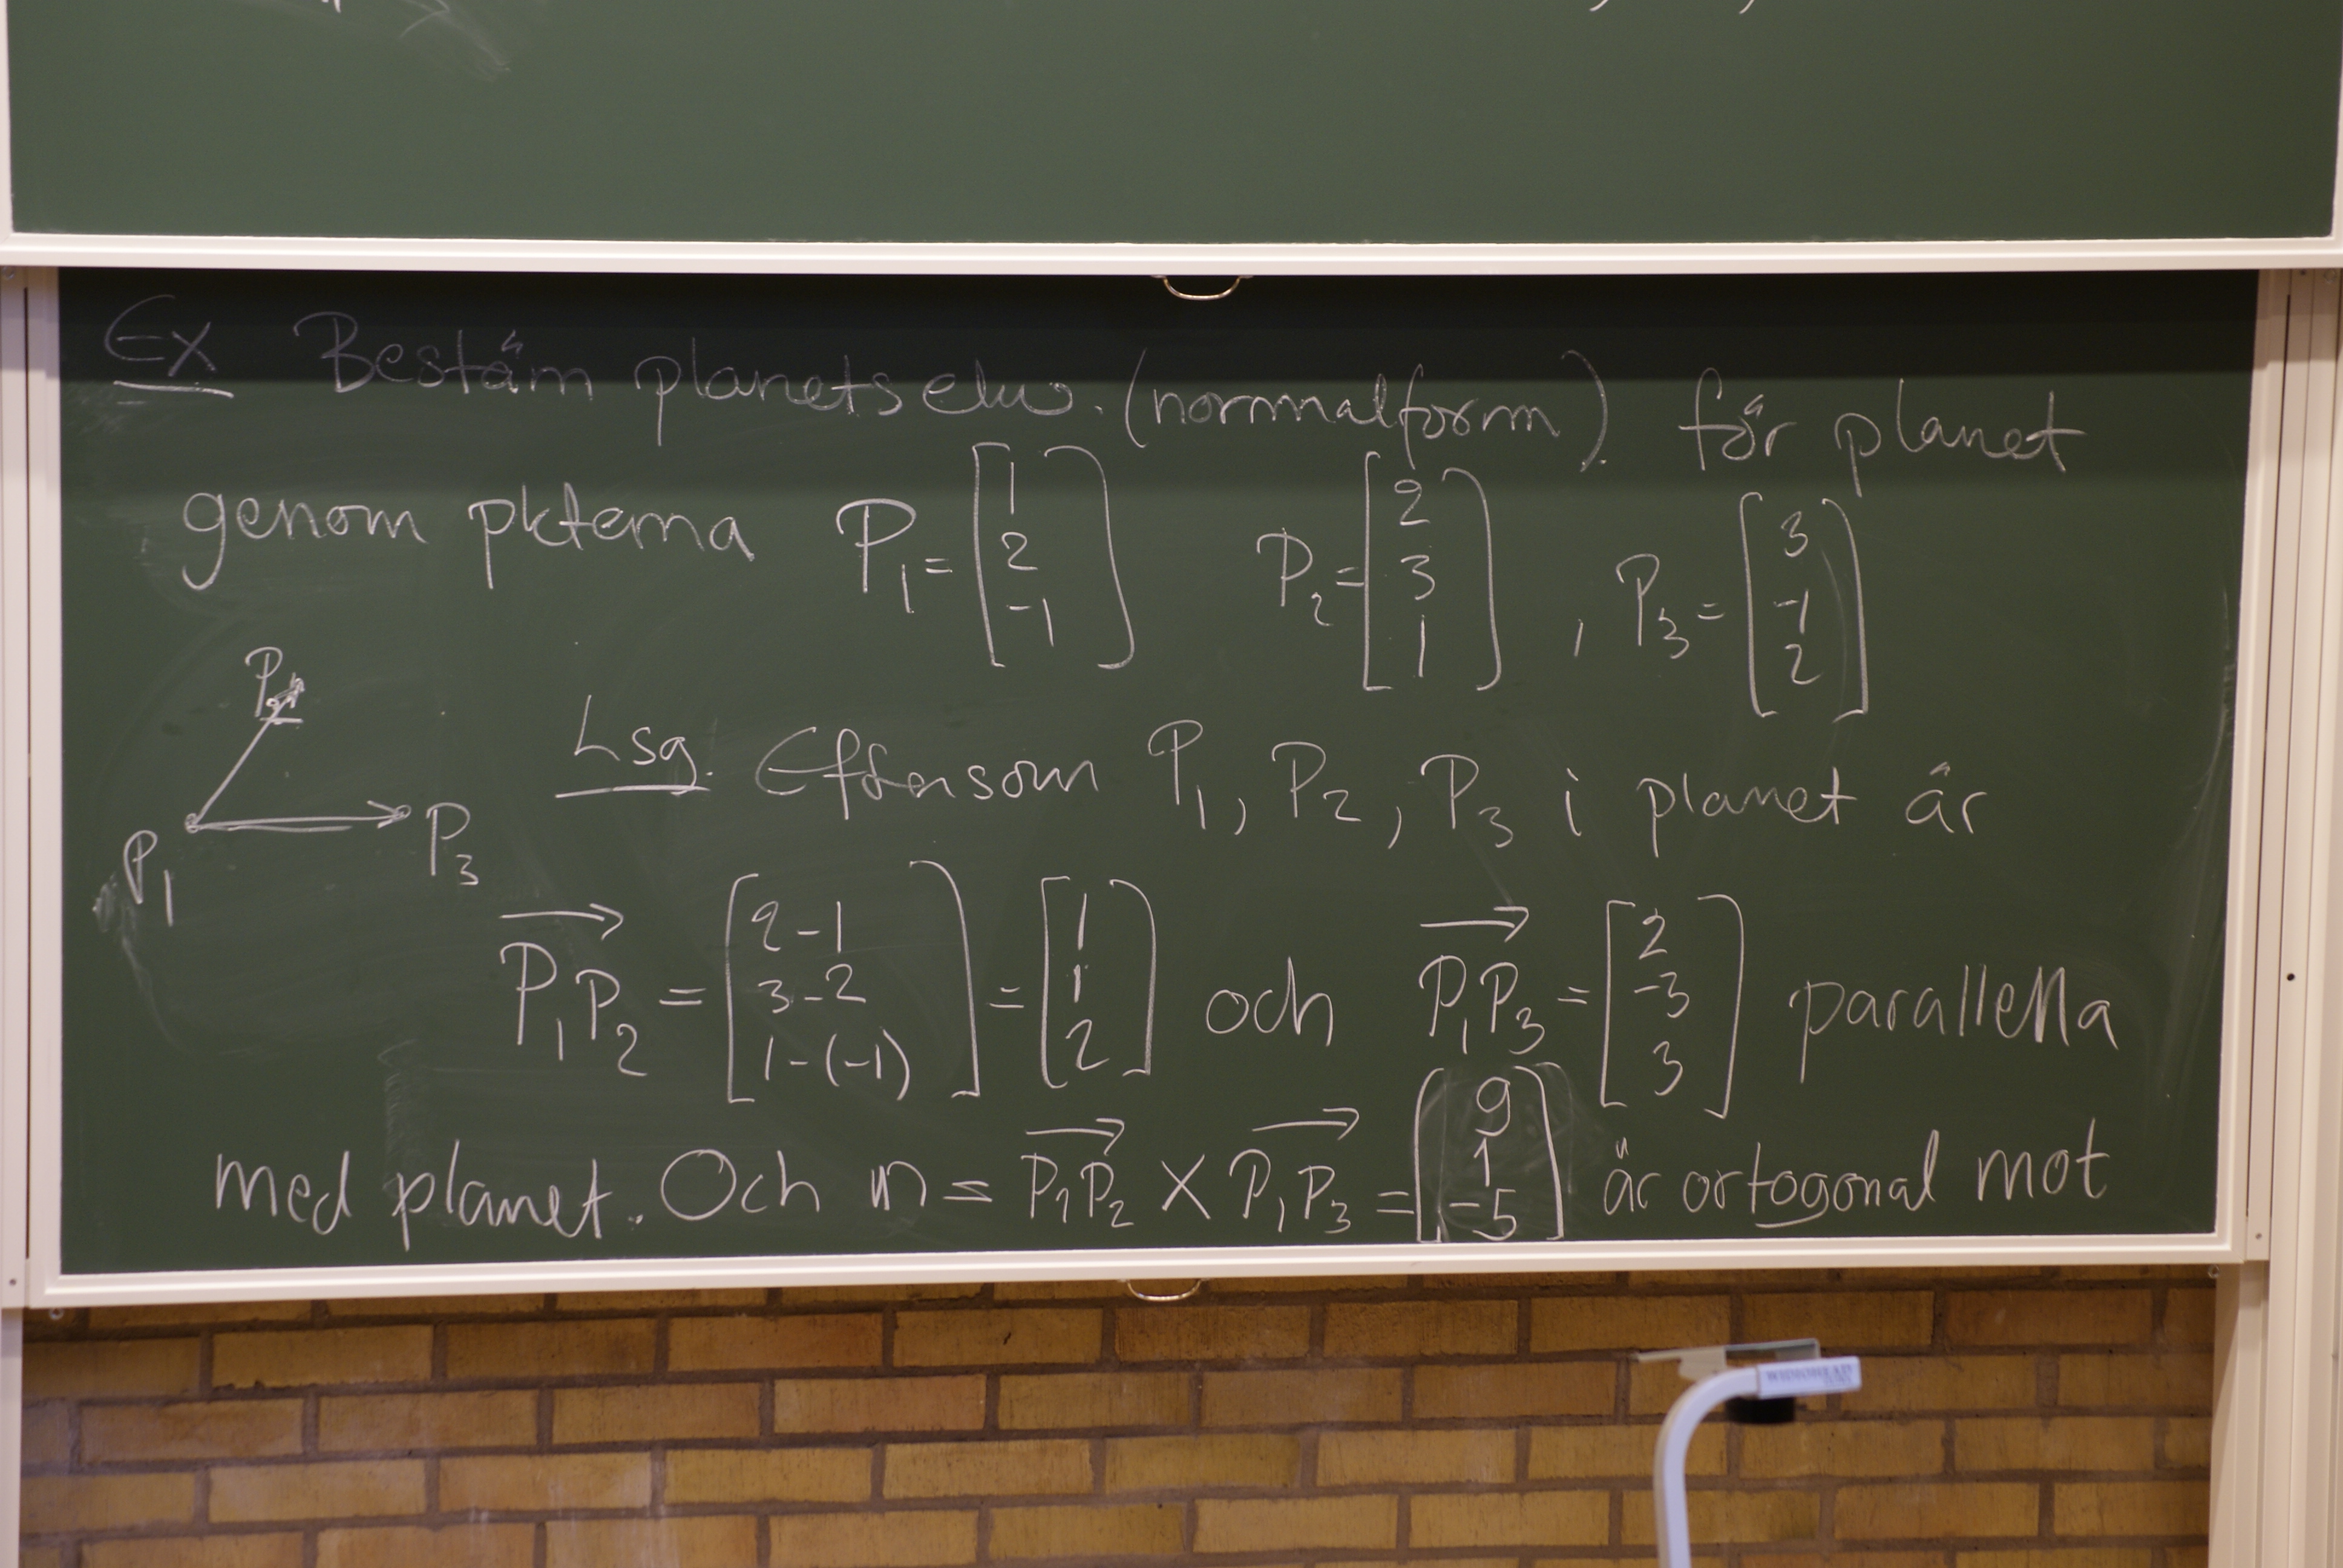 Ex Bestäm planets ekv. (normalform). för planet
genom pkterna P₁ = [1 2 -1] P₂ = [2 3 1], P₃ = [3 -1 2]
P₂
P₁ P₃
Lsg. Eftersom P₁, P₂, P₃ i planet är
P₁P₂ = [2-1 3-2 1-(-1)] = [1 1 2] och P₁P₃ = [2 -3 3] parallella
med planet. Och n = P₁P₂ × P₁P₃ = [9 1 -5] är ortogonal mot